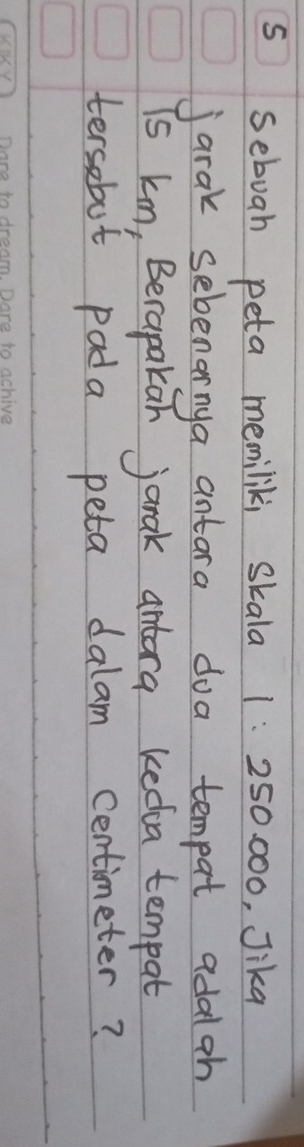 5 Sebuah peta memiliki skala 1:250.000, Jika
jarak sebenarnya antara dua tempat adalah
15 km, Berapakah jarak antara kedua tempat
tersebut pada peta dalam centimeter?
KIKY Dare to dream, Dare to achive